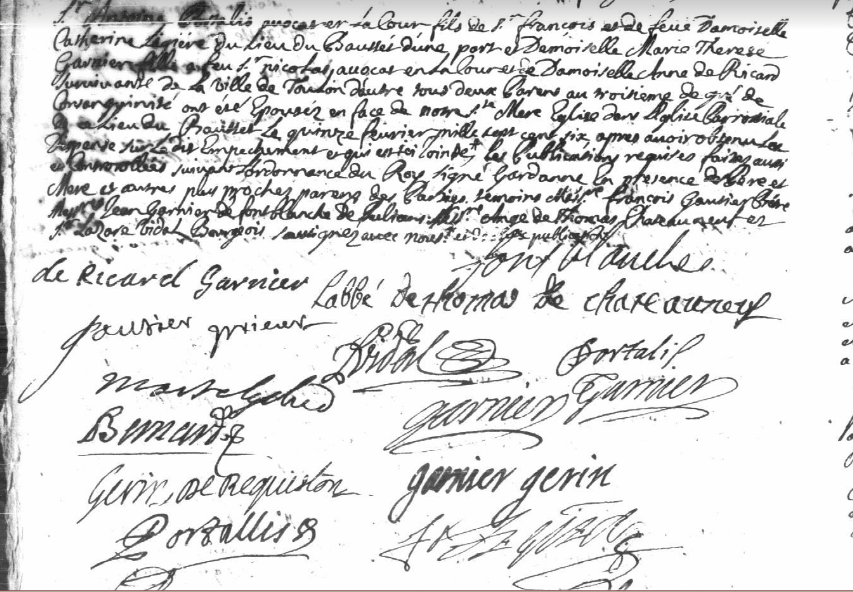 Sr Antoine Portalis avocat en la Cour fils de Sr françois et de feue Damoiselle
Catherine du Lieu du Bausset dune part et Demoiselle Marie Therese
Garnier fille a feu Sr nicolas, avocat en La Cour et de Damoiselle Anne de Ricard
survivante de La Ville de Toulon dautre tous deux Parens au troisieme degré de
Consanguinité ont été Epousez en face de nostre Ste Mere Eglise dans Léglise Parroissiale
de ce Lieu du Bausset Le quinze fevrier mille sept cent six, apres avoir obtenu La
Dispense sur Le dit Empechement et qui est ici jointe, Les Publications requises faites aussi
et Controollées suivant Lordonnance du Roy, signé Gardanne en presence de Pere et
Mere et autres plus proches parens des Parties, temoins Messre François Gautier Pretre
Messre Jean Garnier de fontblanche de Julians Messre Ange de thomas Chateauneuf et
Sr Lazare Vidal Bourgeois soussignez avec nous et publications
fontblanche
de Ricard Garnier
Labbé de thomas de chateauneuf
gautier prieur
Vidal
Portalis
Bernard
garnier Garnier
Gerin, de Requiston
garnier gerin
Portallis